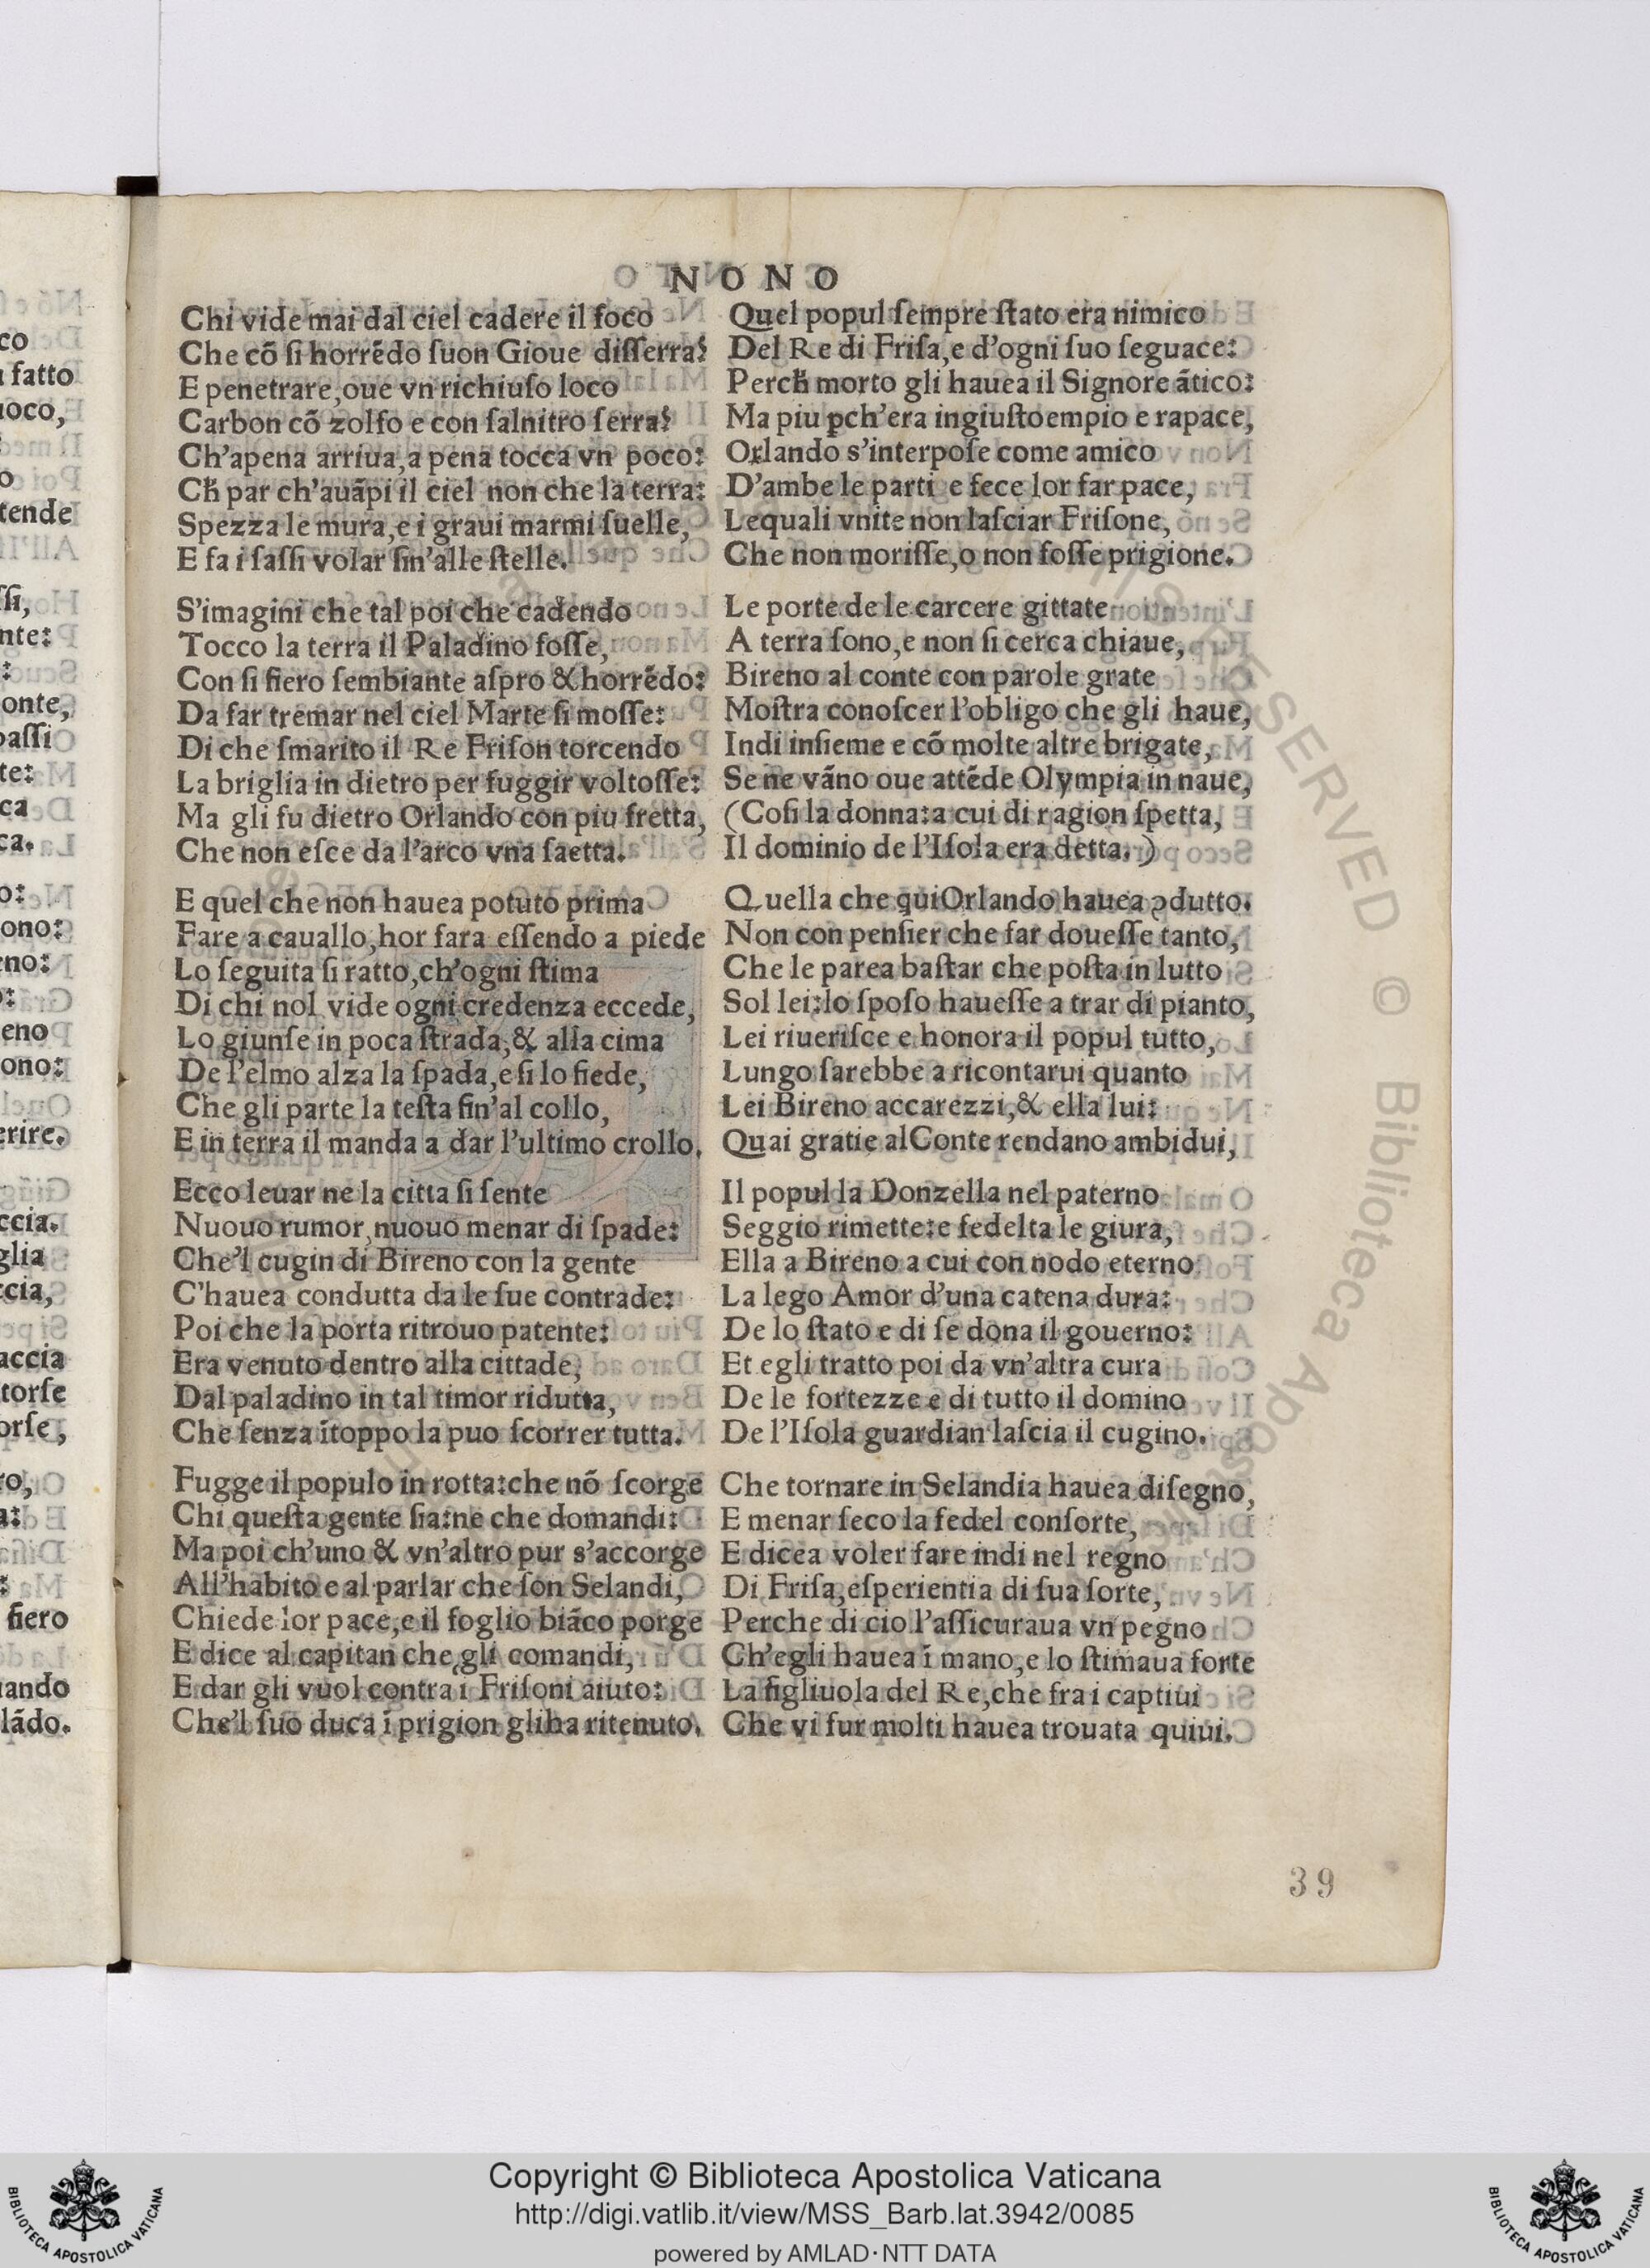 NONO
Chi vide mai dal ciel cadere il foco
Che cõ ſi horrẽdo ſuon Gioue diſſerra?
E penetrare, oue vn richiuſo loco
Carbon cõ zolfo e con ſalnitro ſerra?
Ch'apena arriua, a pena tocca vn poco:
Cħ par ch'auãpi il ciel non che la terra:
Spezza le mura, e i graui marmi ſuelle,
E fa i ſaſſi volar ſin'alle ſtelle.
S'imagini che tal poi che cadendo
Tocco la terra il Paladino foſſe,
Con ſi fiero ſembiante aſpro & horrẽdo:
Da far tremar nel ciel Marte ſi moſſe:
Di che ſmarito il Re Friſon torcendo
La briglia in dietro per fuggir voltoſſe:
Ma gli fu dietro Orlando con piu fretta,
Che non eſce da l'arco vna ſaetta.
E quel che non hauea potuto prima
Fare a cauallo, hor fara eſſendo a piede
Lo ſeguita ſi ratto, ch'ogni ſtima
Di chi nol vide ogni credenza eccede,
Lo giunſe in poca ſtrada, & alla cima
De l'elmo alza la ſpada, e ſi lo fiede,
Che gli parte la teſta ſin'al collo,
E in terra il manda a dar l'ultimo crollo.
Ecco leuar ne la citta ſi ſente
Nuouo rumor, nuouo menar di ſpade:
Che'l cugin di Bireno con la gente
C'hauea condutta da le ſue contrade:
Poi che la porta ritrouo patente:
Era venuto dentro alla cittade,
Dal paladino in tal timor ridutta,
Che ſenza ĩtoppo la puo ſcorrer tutta.
Fugge il populo in rotta: che nõ ſcorge
Chi queſta gente ſia: ne che domandi:
Ma poi ch'uno & vn'altro pur s'accorge
All'habito e al parlar che ſon Selandi,
Chiede lor pace, e il foglio biãco porge
E dice al capitan che gli comandi,
E dar gli vuol contra i Friſoni aiuto:
Che'l ſuo duca ĩ prigion gli ha ritenuto.
Quel popul ſempre ſtato era nimico
Del Re di Friſa, e d'ogni ſuo ſeguace:
Percħ morto gli hauea il Signore ãtico:
Ma piu ꝑch'era ingiuſto empio e rapace,
Orlando s'interpoſe come amico
D'ambe le parti e fece lor far pace,
Lequali vnite non laſciar Friſone,
Che non moriſſe, o non foſſe prigione.
Le porte de le carcere gittate
A terra ſono, e non ſi cerca chiaue,
Bireno al conte con parole grate
Moſtra conoſcer l'obligo che gli haue,
Indi inſieme e cõ molte altre brigate,
Se ne vãno oue attẽde Olympia in naue,
(Coſi la donna: a cui di ragion ſpetta,
Il dominio de l'Iſola era detta.)
Quella che qui Orlando hauea ꝯdutto.
Non con penſier che far doueſſe tanto,
Che le parea baſtar che poſta in lutto
Sol lei: lo ſpoſo haueſſe a trar di pianto,
Lei riueriſce e honora il popul tutto,
Lungo ſarebbe a ricontarui quanto
Lei Bireno accarezzi, & ella lui:
Quai gratie al Conte rendano ambidui,
Il popul la Donzella nel paterno
Seggio rimette: e fedelta le giura,
Ella a Bireno a cui con nodo eterno
La lego Amor d'una catena dura:
De lo ſtato e di ſe dona il gouerno:
Et egli tratto poi da vn'altra cura
De le fortezze e di tutto il domino
De l'Iſola guardian laſcia il cugino.
Che tornare in Selandia hauea diſegno,
E menar ſeco la fedel conſorte,
E dicea voler fare indi nel regno
Di Friſa, eſperientia di ſua ſorte,
Perche di cio l'aſſicuraua vn pegno
Ch'egli hauea ĩ mano, e lo ſtimaua forte
La figliuola del Re, che fra i captiui
Che vi fur molti hauea trouata quiui.
39
Copyright © Biblioteca Apostolica Vaticana
http://digi.vatlib.it/view/MSS_Barb.lat.3942/0085
powered by AMLAD·NTT DATA
BIBLIOTECA APOSTOLICA VATICANA
BIBLIOTECA APOSTOLICA VATICANA